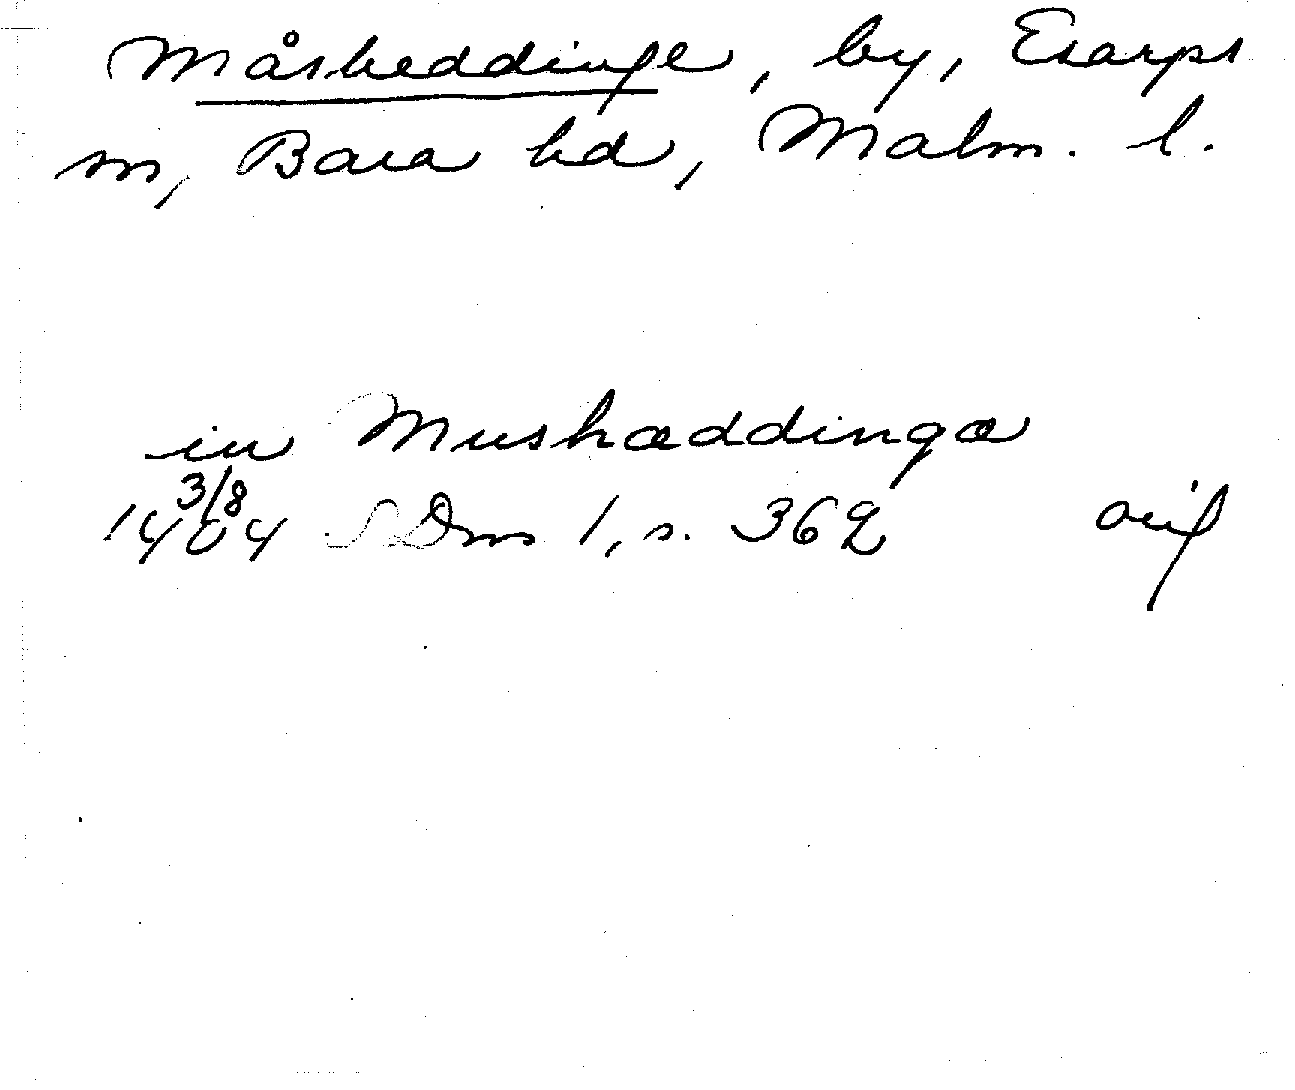 Måsheddinge, by, Esarps
sn, Bara hd, Malm. l.
in Mushæddingæ
3/8
1404 SDns 1, s. 362 orig